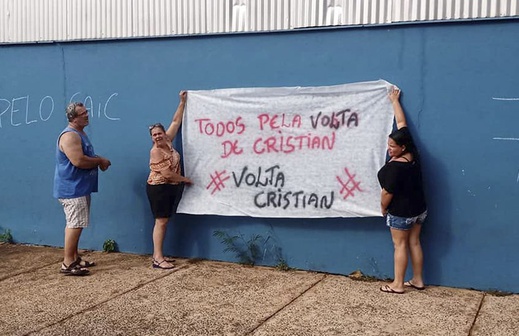 PELO CAIC
TODOS PELA VOLTA
DE CRISTIAN
# VOLTA #
CRISTIAN